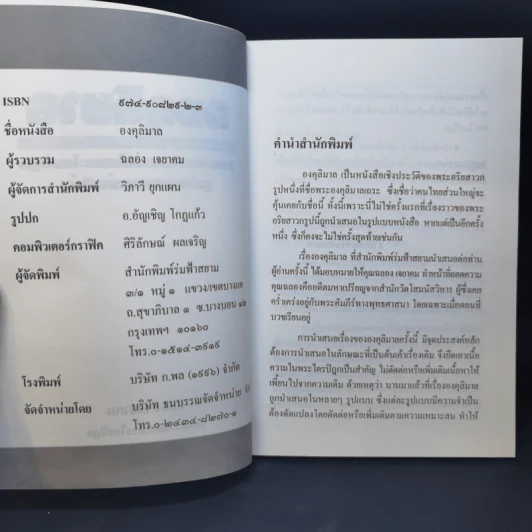 ISBN ๙๗๔-๙๐๘๒๙-๒-๓
ชื่อหนังสือ องคุลิมาล
ผู้รวบรวม ฉลอง เจยาคม
ผู้จัดการสำนักพิมพ์ วิภาวี ยุกแผน
รูปปก อ.อัญเชิญ โกฏแก้ว
คอมพิวเตอร์กราฟิค ศิริลักษณ์ ผลเจริญ
ผู้จัดพิมพ์ สำนักพิมพ์ร่มฟ้าสยาม
๓/๑ หมู่ ๑ แขวง/เขตบางแค
ถ.สุขาภิบาล ๑ ซ.บางบอน
กรุงเทพฯ ๑๐๑๖๐
โทร.๐-๑๕๑๔-๓๙๑๙
โรงพิมพ์ บริษัท ก.พล (๑๙๙๖) จำกัด
จัดจำหน่ายโดย บริษัท ธนบรรณจัดจำหน่าย จำกัด
โทร.๐-๒๔๓๔-๘๒๗๐-๑
คำนำสำนักพิมพ์
องคุลิมาล เป็นหนังสือเชิงประวัติของพระอริยสาวก
รูปหนึ่งที่ชื่อพระองคุลิมาลเถระ ซึ่งเชื่อว่าคนไทยส่วนใหญ่จะ
คุ้นเคยกับชื่อนี้ ทั้งนี้เพราะนี่ไม่ใช่ครั้งแรกที่เรื่องราวของพระ
อริยสาวกรูปนี้ถูกนำเสนอในรูปแบบหนังสือ หากแต่เป็นอีกครั้ง
หนึ่ง ซึ่งก็คงจะไม่ใช่ครั้งสุดท้ายเช่นกัน
เรื่ององคุลิมาล ที่สำนักพิมพ์ร่มฟ้าสยามนำเสนอต่อท่าน
ผู้อ่านครั้งนี้ ได้มอบหมายให้คุณฉลอง เจยาคม ทำหน้าที่ลดความ
คุณฉลองคืออดีตมหาเปรียญจากสำนักวัดโสมนัสวิหาร ผู้ซึ่งเคย
คร่ำเคร่งอยู่กับพระคัมภีร์ทางพุทธศาสนา โดยเฉพาะเมื่อตอนที่
บวชเรียนอยู่
การนำเสนอเรื่องขององคุลิมาลครั้งนี้ มีจุดประสงค์หลัก
ต้องการนำเสนอในลักษณะที่เป็นต้นเค้าเรื่องเดิม จึงยึดเอาเนื้อ
ความในพระไตรปิฎกเป็นสำคัญ ไม่ตัดต่อหรือเพิ่มเติมเนื้อหาให้
เพี้ยนไปจากความเดิม ด้วยเหตุว่า นานมาแล้วที่เรื่ององคุลิมาล
ถูกนำเสนอในหลายๆ รูปแบบ ซึ่งแต่ละรูปแบบมีความจำเป็น
ต้องดัดแปลงโดยตัดต่อหรือเพิ่มเติมตามความเหมาะสม ทำให้